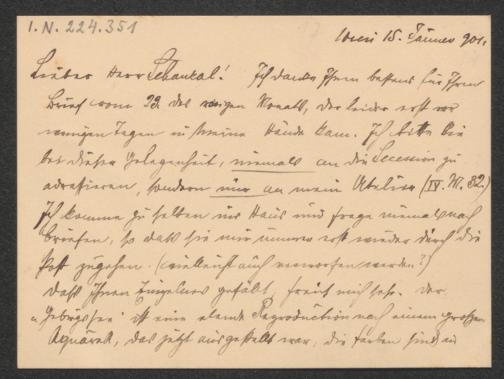 I.N. 224.351
Wien 15. Jänner 901.
Lieber Herr Schaukal! Ich danke Ihnen bestens für Ihren
Brief vom 22. des vorigen Monats, der leider erst vor
wenigen Tagen in meine Hände kam. Ich bitte Sie
bei dieser Gelegenheit, niemals an die Secession zu
adressieren, sondern nur an mein Atelier (IV. W. 32.)
Ich komme zu selten ins Haus und frage niemals nach
Briefen, so dass sie mir immer erst wieder durch die
Post zugehen. (vielleicht auch verworfen werden?)
Dass Ihnen Einzelnes gefällt, freut mich sehr. Der
"Gebirgssee" ist eine elende Reproduction nach einem großen
Aquarell, das jetzt ausgestellt war, die Farben sind